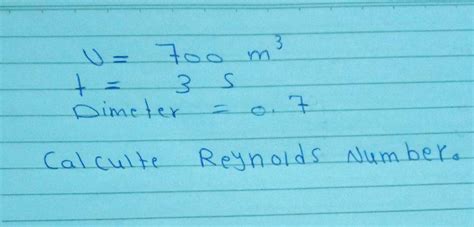 U = 700 m³
t = 3 S
Dimeter = 0.7
Calculte Reynolds Number.